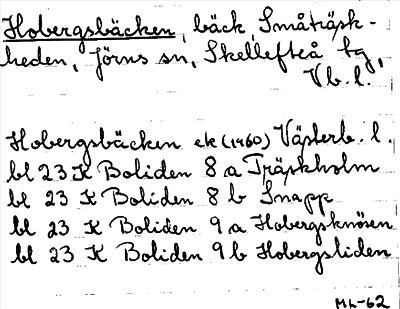 Hobergsbäcken, bäck, Småträsk-
heden, Jörns sn, Skellefteå tg,
Vb. l.
Hobergsbäcken ek (1960) Västerb. l.
bl 23 K Boliden 8 a Träskholm
bl 23 K Boliden 8 b Snapp
bl 23 K Boliden 9 a Hobergsknösen
bl 23 K Boliden 9 b Hobergsliden
ML-62